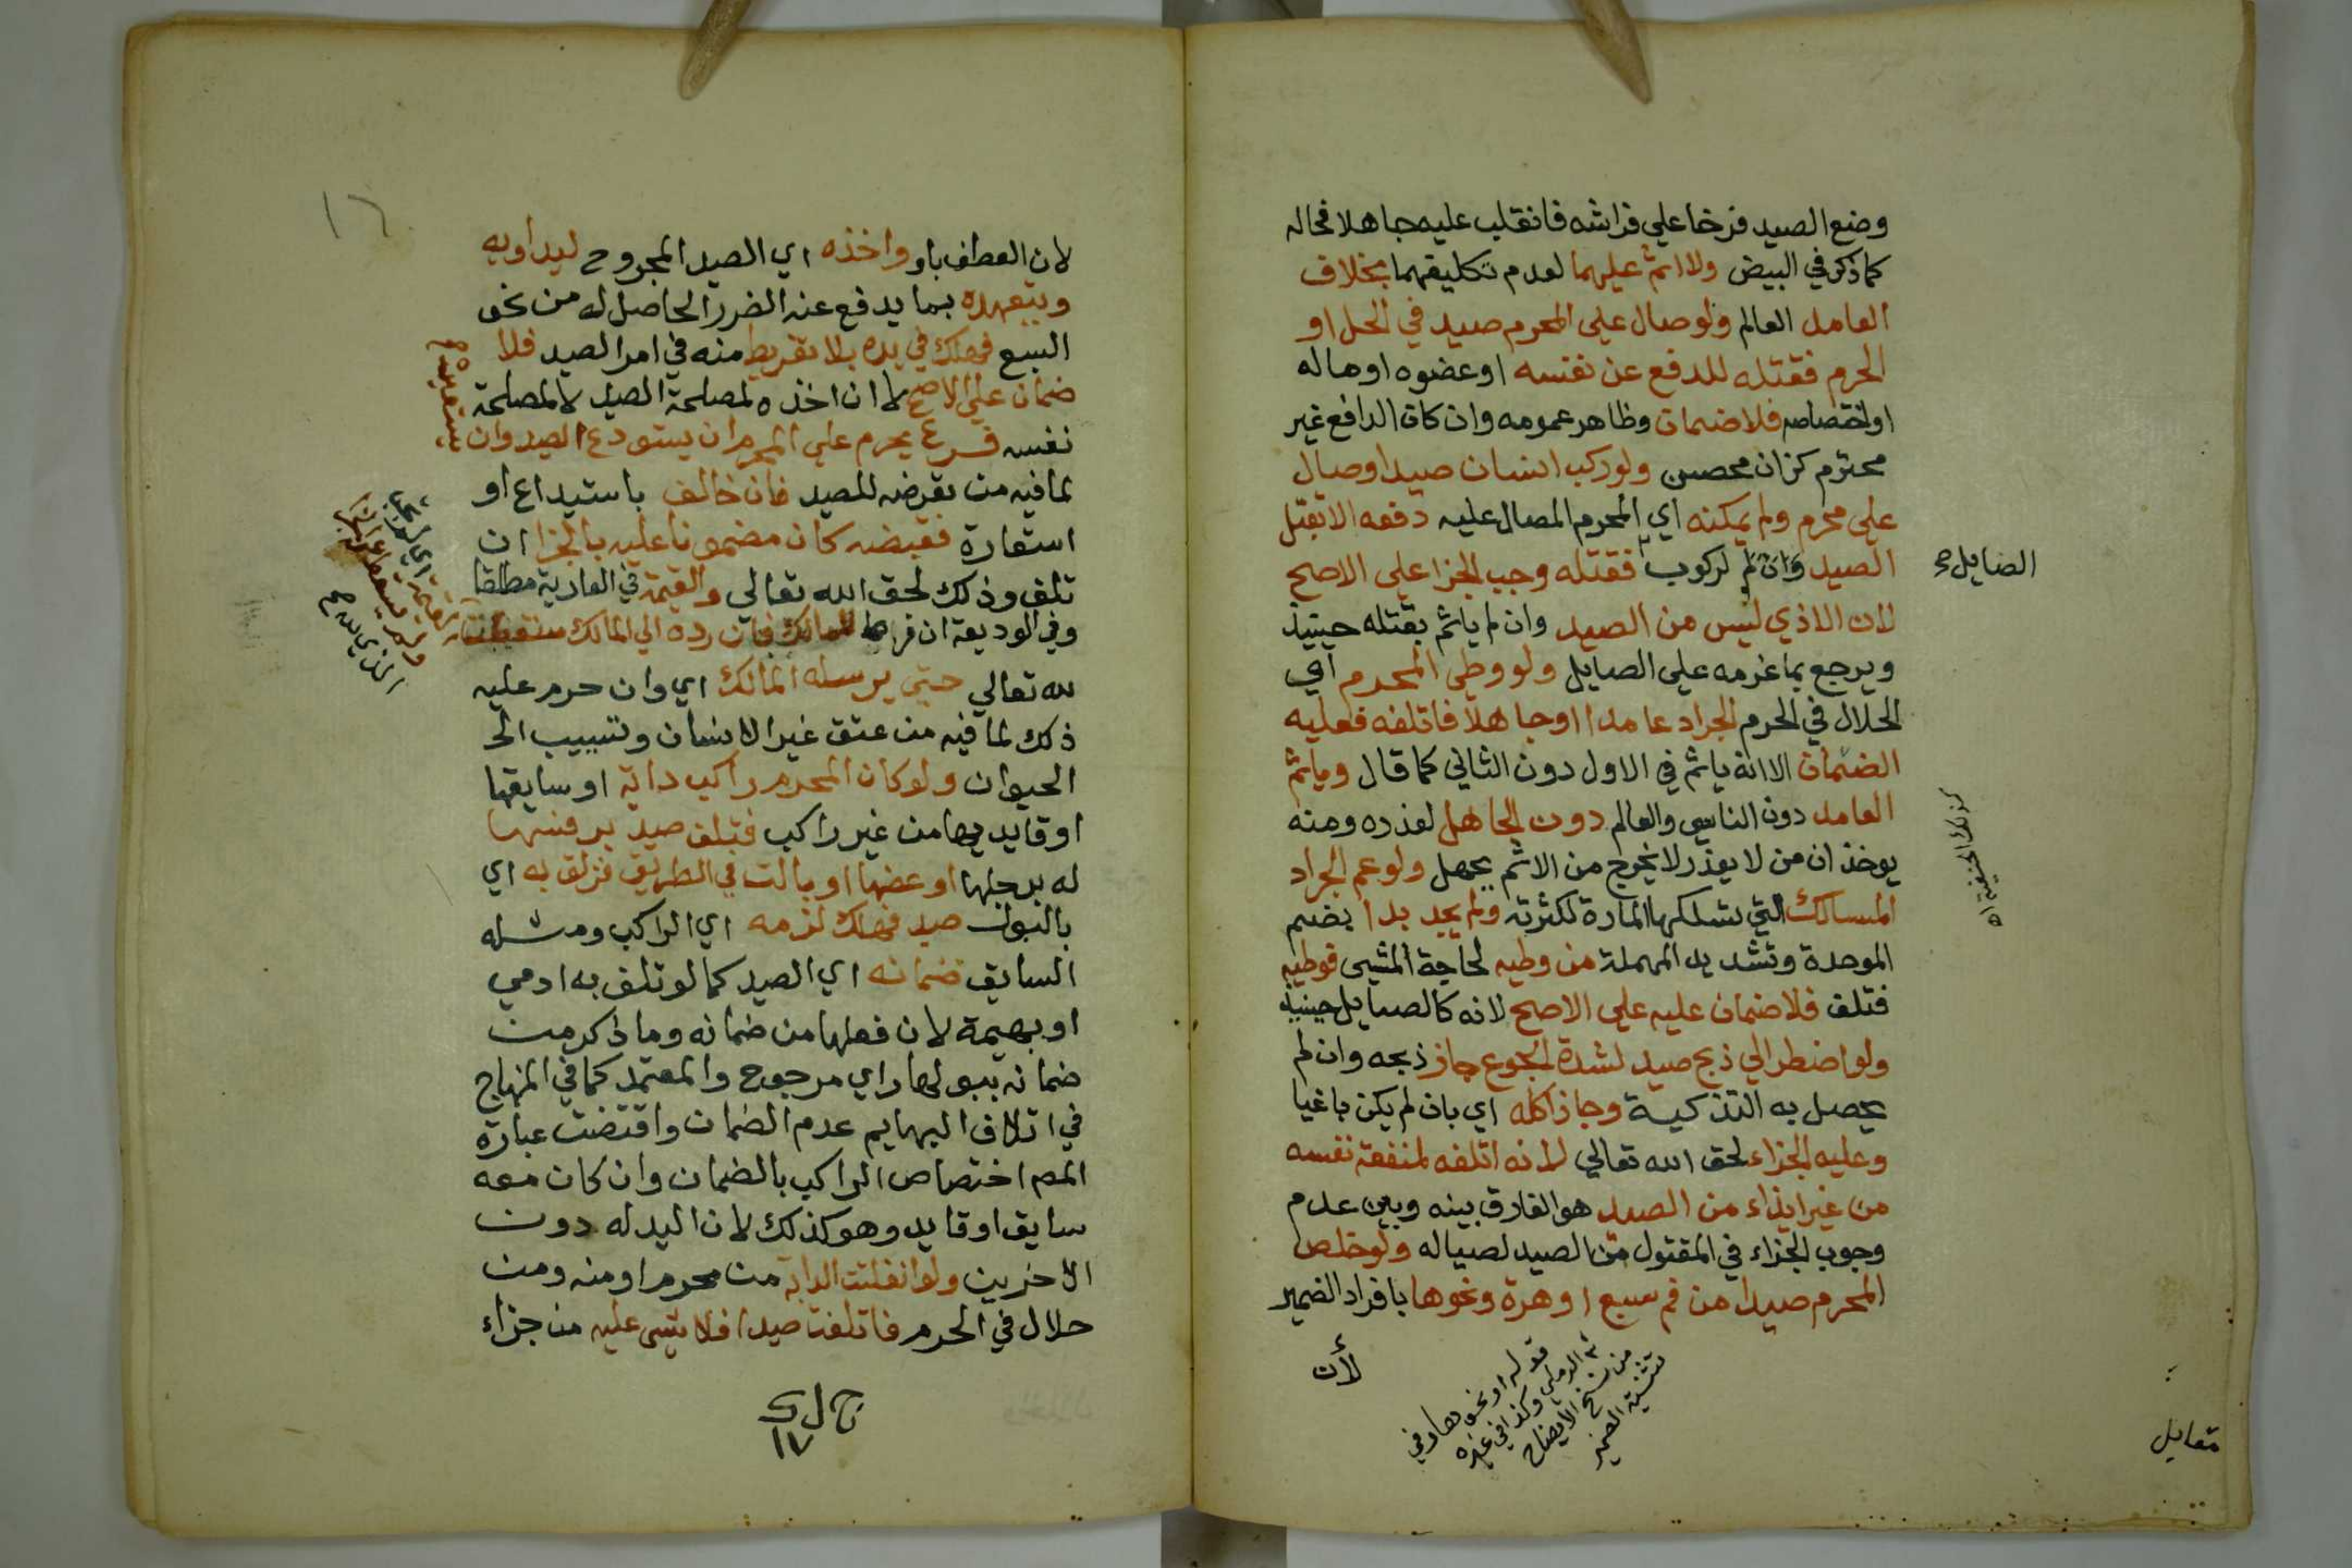 وضع الصيد فرخا علي فراشه فانقلب عليه جاهلا فحاله
كما ذكر في البيض ولا اثم عليهما لعدم تكليفهما بخلاف
العامد العالم ولو صال علي المحرم صيد في الحل او
الحرم فقتله للدفع عن نفسه او عضوه او ماله
او اختصاصه فلا ضمان وظاهر عمومه وان كان الدافع غير
محترم كزان محصن ولو ركب انسان صيدا وصال
علي محرم ولم يمكنه اي المحرم المصال عليه دفعه الا بقتل
الصيد وان لم لركوب فقتله وجب الجزا علي الاصح
الصايل ص
لان الاذي ليس من الصيد وان لم ياثم بقتله حينيذ
ويرجع بما غرمه علي الصايل ولو وطي المحرم اي
الحلال في الحرم الجراد عامدا او جاهلا فاتلفه فعليه
الضمان الا انه ياثم في الاول دون الثاني كما قال وياثم
العامد دون الناسي والعالم دون الجاهل لعذره ومنه
يوخذ ان من لا يعذر لا يخرج من الاثم بجهل ولو عم الجراد
المسالك التي تسلكها المارة لكثرته ولم يجد بدا بضم
الموحدة وتشديد المهملة من وطيه لحاجة المشي فوطيه
فتلف فلا ضمان عليه علي الاصح لانه كالصايل حينيذ
ولو اضطر الي ذبح صيد لشدة الجوع جاز ذبحه وان لم
يحصل به التذكية وجاز اكله اي بان لم يكن باغيا
وعليه الجزاء لحق الله تعالي لانه اتلفه لمنفعة نفسه
من غير ايذاء من الصيد هو الفارق بينه وبين عدم
وجوب الجزاء في المقتول من الصيد لصياله ولو خلص
المحرم صيدا من فم سبع او هرة ونحوها بافراد الضمير
لأن
قوله او نحوها وفي
الرملي وكذا في غيره
من نسخ الايضاح
تثنية الضمير
مقابل
لان العطف باو واخذه اي الصيد المجروح ليداويه
ويتعهده بما يدفع عنه الضرر الحاصل له من نحو
السبع فهلك في يده بلا تفريط منه في امر الصيد فلا
ضمان علي الاصح لا ان اخذه لمصلحة الصيد لا لمصلحة
نفسه فرع يحرم علي المحرم ان يستودع الصيد وان
يستعيره
لما فيه من تعرضه للصيد فان خالف باستيداع او
استعارة فقبضه كان مضمونا عليه بالجزا ان
تلف وذلك لحق الله تعالي والقيمة في العارية مطلقا
وفي الوديعة ان فرط للمالك فان رده الي المالك سقطت
لله تعالي حتي يرسله المالك اي وان حرم عليه
ذلك لما فيه من عتق غير الانسان وتسييب الح
الحيوان ولو كان المحرم راكب دابة او سايقها
او قايدها من غير راكب فتلف صيد برفسها
له برجلها او عضها او بالت في الطريق فزلق به اي
بالبول صيد فهلك لزمه اي الراكب ومثله
السايق ضمانه اي الصيد كما لو تلف به ادمي
او بهيمة لان فعلها من ضمانه وما ذكر من
ضمانه ببولها راي مرجوح والمعتمد كما في المنهاج
في اتلاف البهايم عدم الضمان واقتضت عبارة
المص اختصاص الراكب بالضمان وان كان معه
سايق او قايد وهو كذلك لان اليد له دون
الاخرين ولو انفلتت الدابة من محرم او منه ومن
حلال في الحرم فاتلفت صيدا فلا شي عليه من جزاء
١٧
١٦